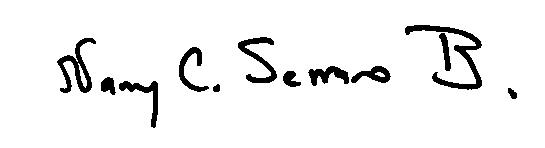 Nancy C. Serrano B.